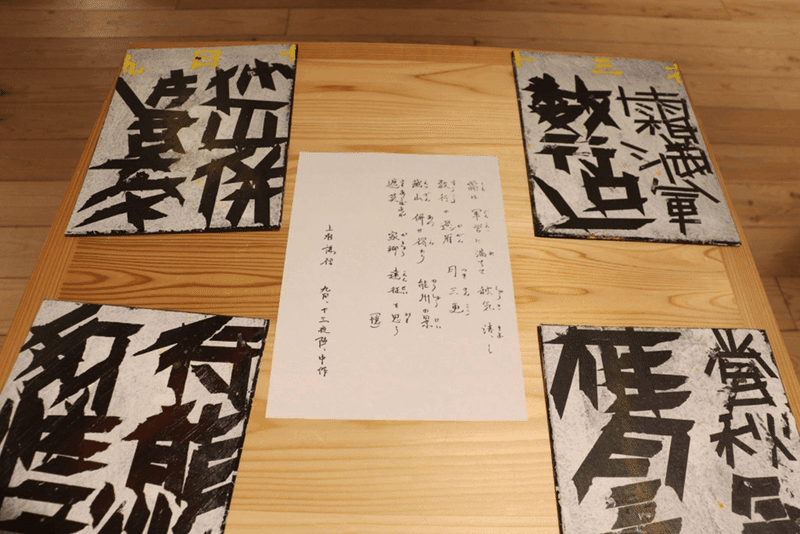 霜満軍
数行過
営秋
雁月三
霜は 軍営に 満ちて 秋気 清し
数行の過雁 月三更
越山 併せ得たり 能州の景
遮莫 家郷 遠征を思う
(憶)
上杉謙信 九月、十三夜陣、中作
越山併
得能州